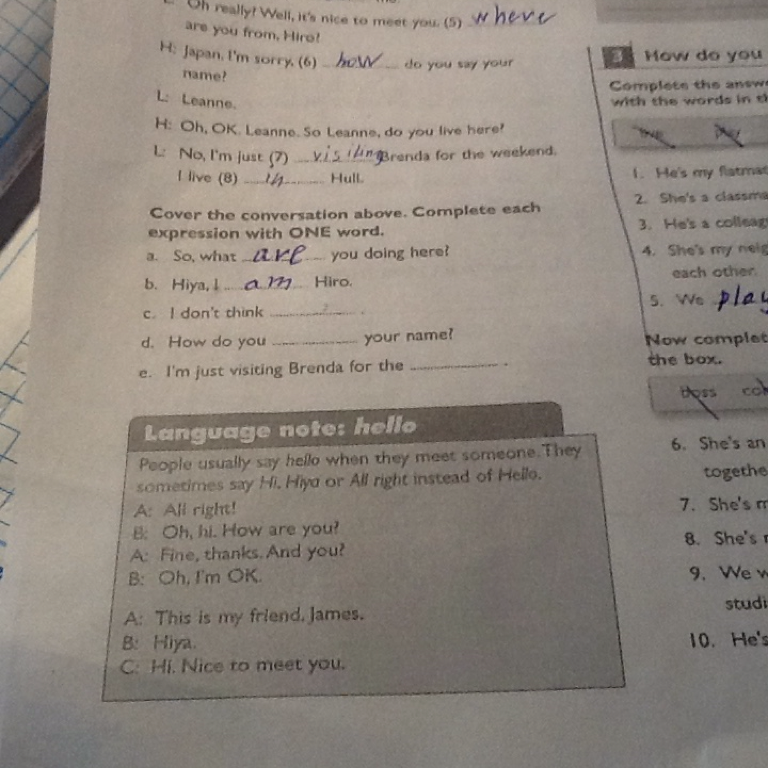 Oh really? Well, it's nice to meet you. (5) where
are you from, Hiro?
H: Japan. I'm sorry. (6) how do you say your
name?
L: Leanne.
H: Oh, OK. Leanne. So Leanne, do you live here?
L: No, I'm just (7) visiting Brenda for the weekend.
I live (8) in Hull.
Cover the conversation above. Complete each
expression with ONE word.
a. So, what are you doing here?
b. Hiya, I am Hiro.
c. I don't think .............. .
d. How do you .............. your name?
e. I'm just visiting Brenda for the .............. .
Language note: hello
People usually say hello when they meet someone. They
sometimes say Hi, Hiya or All right instead of Hello.
A: All right!
B: Oh, hi. How are you?
A: Fine, thanks. And you?
B: Oh, I'm OK.
A: This is my friend, James.
B: Hiya.
C: Hi. Nice to meet you.
3 How do you
Complete the answ
with the words in th
live play
1. He's my flatmat
2. She's a classma
3. He's a colleag
4. She's my neig
each other.
5. We play
Now complet
the box.
boss col
6. She's an
togethe
7. She's m
8. She's r
9. We w
studi
10. He's